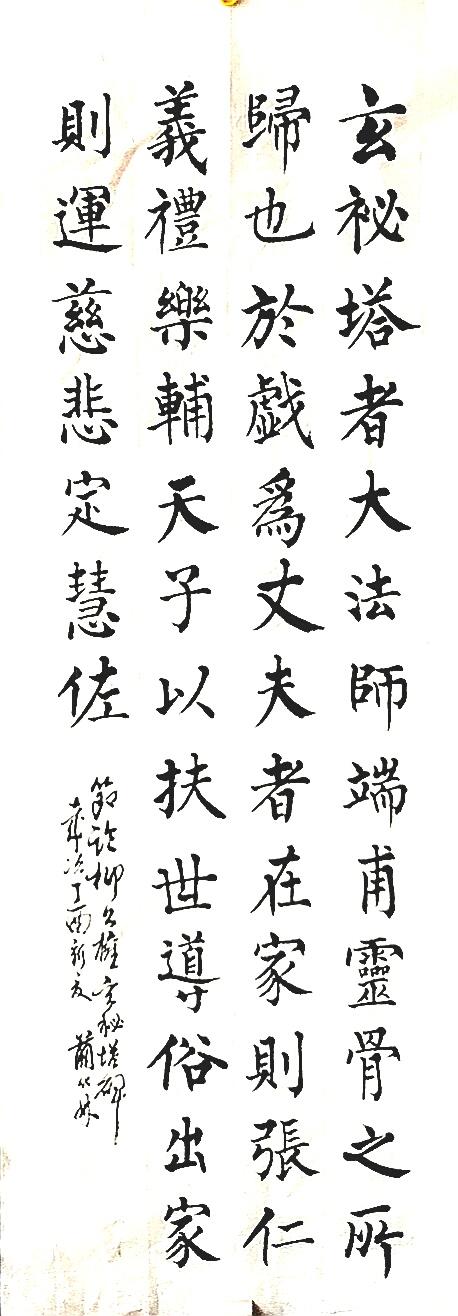 玄祕塔者大法師端甫靈骨之所
歸也於戲爲丈夫者在家則張仁
義禮樂輔天子以扶世導俗出家
則運慈悲定慧佐
節臨柳公權玄秘塔碑
歲次丁酉新夏